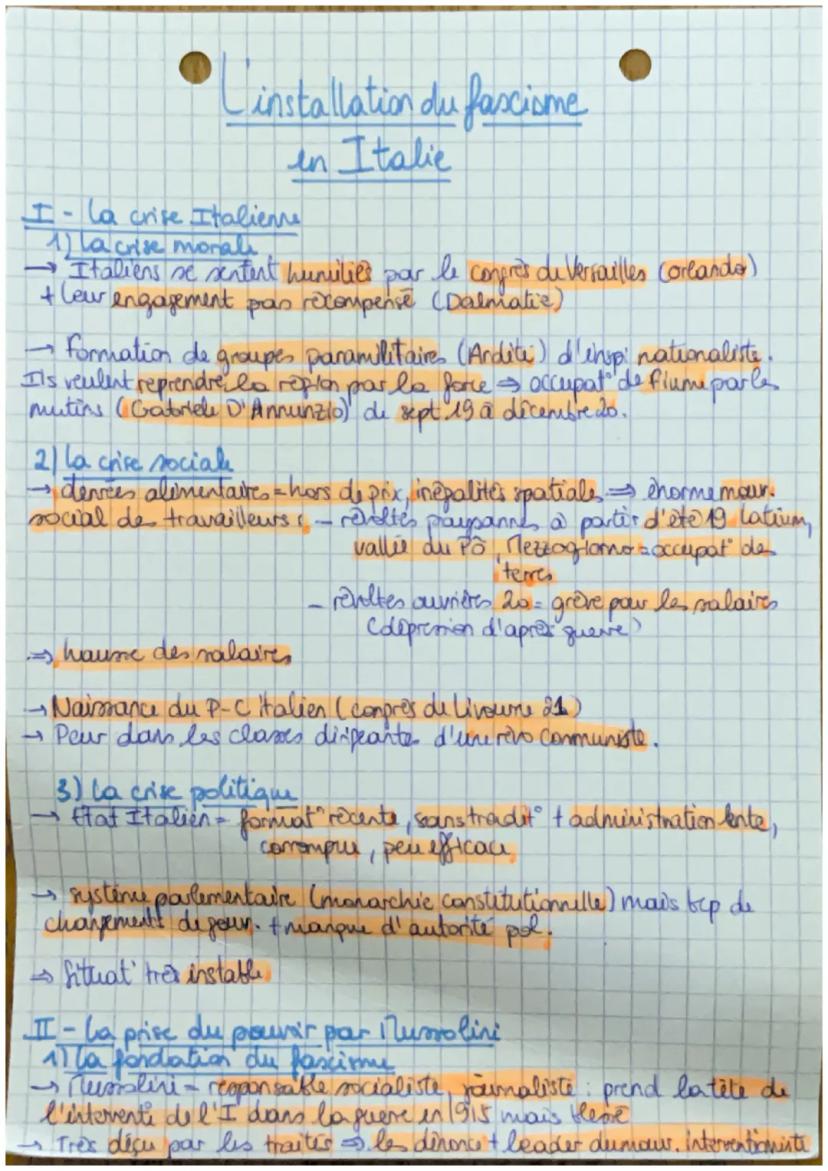 L'installation du fascisme
en Italie
I - La crise Italienne
1) La crise morale
→ Italiens se sentent humiliés par le congrès de Versailles (Orlando)
+ leur engagement pas récompensé (Dalmatie)
→ formation de groupes paramilitaires (Arditi) d'inspi nationaliste.
Ils veulent reprendre la région par la force ⇒ occupat° de fiume par les
mutins (Gabriele D'Annunzio) de sept.19 à décembre 20.
2) La crise sociale
→ denrées alimentaires = hors de prix, inégalités spatiales ⇒ énorme mouv.
social de travailleurs : - révoltes paysannes à partir d'été 19 Latium,
vallée du Pô, Mezzogiorno = occupat° de
terres
- révoltes ouvrières 20 = grève pour les salaires
(dépression d'après guerre)
⇒ hausse des salaires
→ Naissance du P-C italien (congrès de Livourne 21)
→ Peur dans les classes dirigeantes d'une révo communiste.
3) La crise politique
→ État Italien = format° récente, sans tradit° + administration lente,
corrompue, peu efficace
→ système parlementaire (monarchie constitutionnelle) mais bcp de
changements de gouv. + manque d'autorité pol.
⇒ Situat° très instable
II - La prise du pouvoir par Mussolini
1) La fondation du fascisme
→ Mussolini = responsable socialiste, journaliste : prend la tête de
l'interventi de l'I dans la guerre en 1915 mais blessé
→ Très déçu par les traités ⇒ les dénonce + leader du mouv. interventionniste